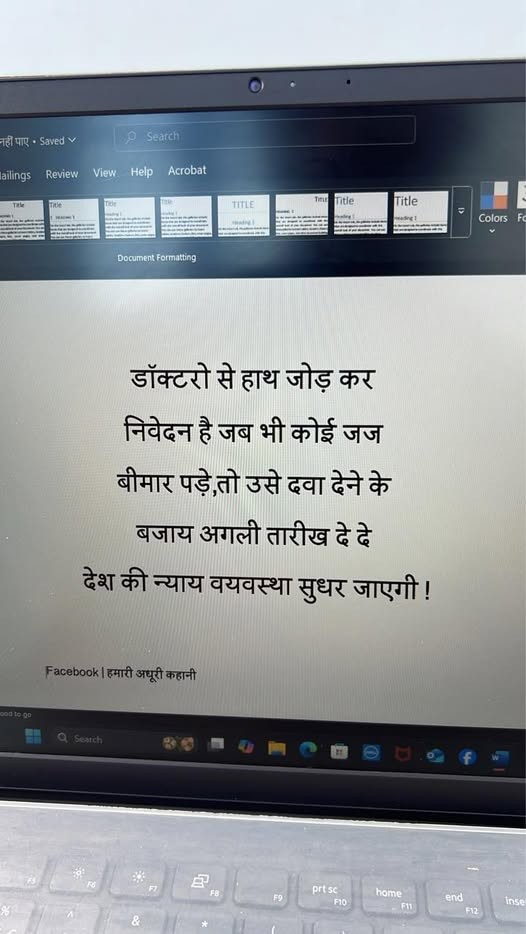 नहीं पाए • Saved
Search
ailings Review View Help Acrobat
Title Title Title Title TITLE Title Title Title
Heading 1 Heading 1 Heading 1
Colors
Document Formatting
डॉक्टरो से हाथ जोड़ कर
निवेदन है जब भी कोई जज
बीमार पड़े,तो उसे दवा देने के
बजाय अगली तारीख दे दे
देश की न्याय वयवस्था सुधर जाएगी !
Facebook | हमारी अधूरी कहानी
ood to go
Search
F5 F6 F7 F8 F9 prt sc F10 home F11 end F12 inse
% ^ & * (